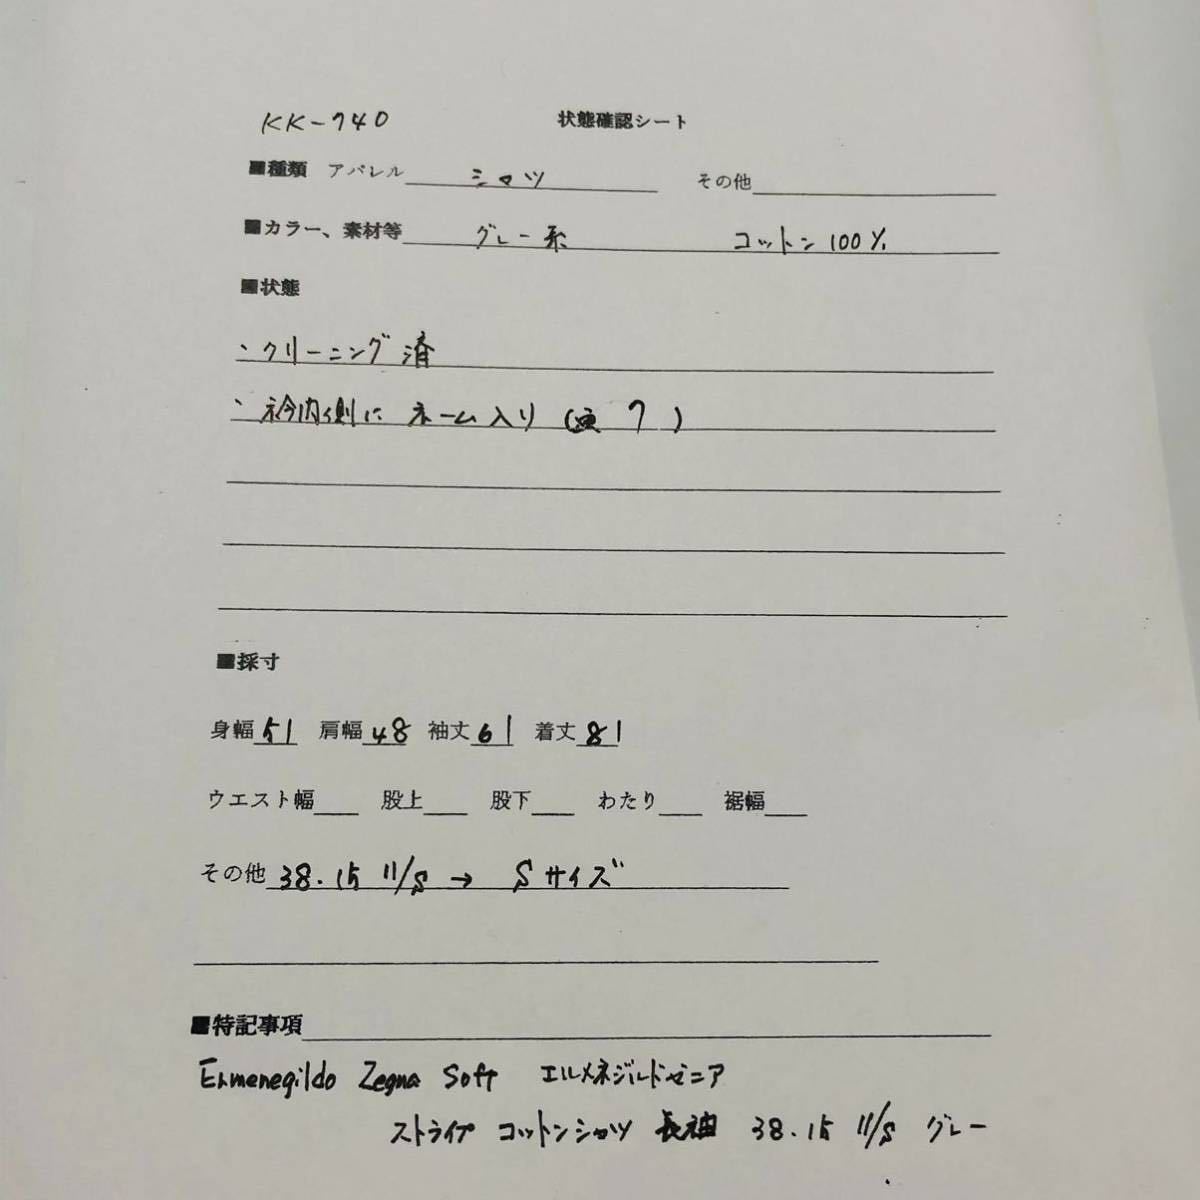 KK-740 状態確認シート
■種類 アパレル シャツ その他
■カラー、素材等 グレー系 コットン 100%
■状態
・クリーニング済
・衿内側に ネーム入り ( 7 )
■採寸
身幅51 肩幅48 袖丈61 着丈81
ウエスト幅 股上 股下 わたり 裾幅
その他 38.15 11/S → Sサイズ
■特記事項
Ermenegildo Zegna Soft エルメネジルドゼニア
ストライプ コットンシャツ 長袖 38.15 11/S グレー